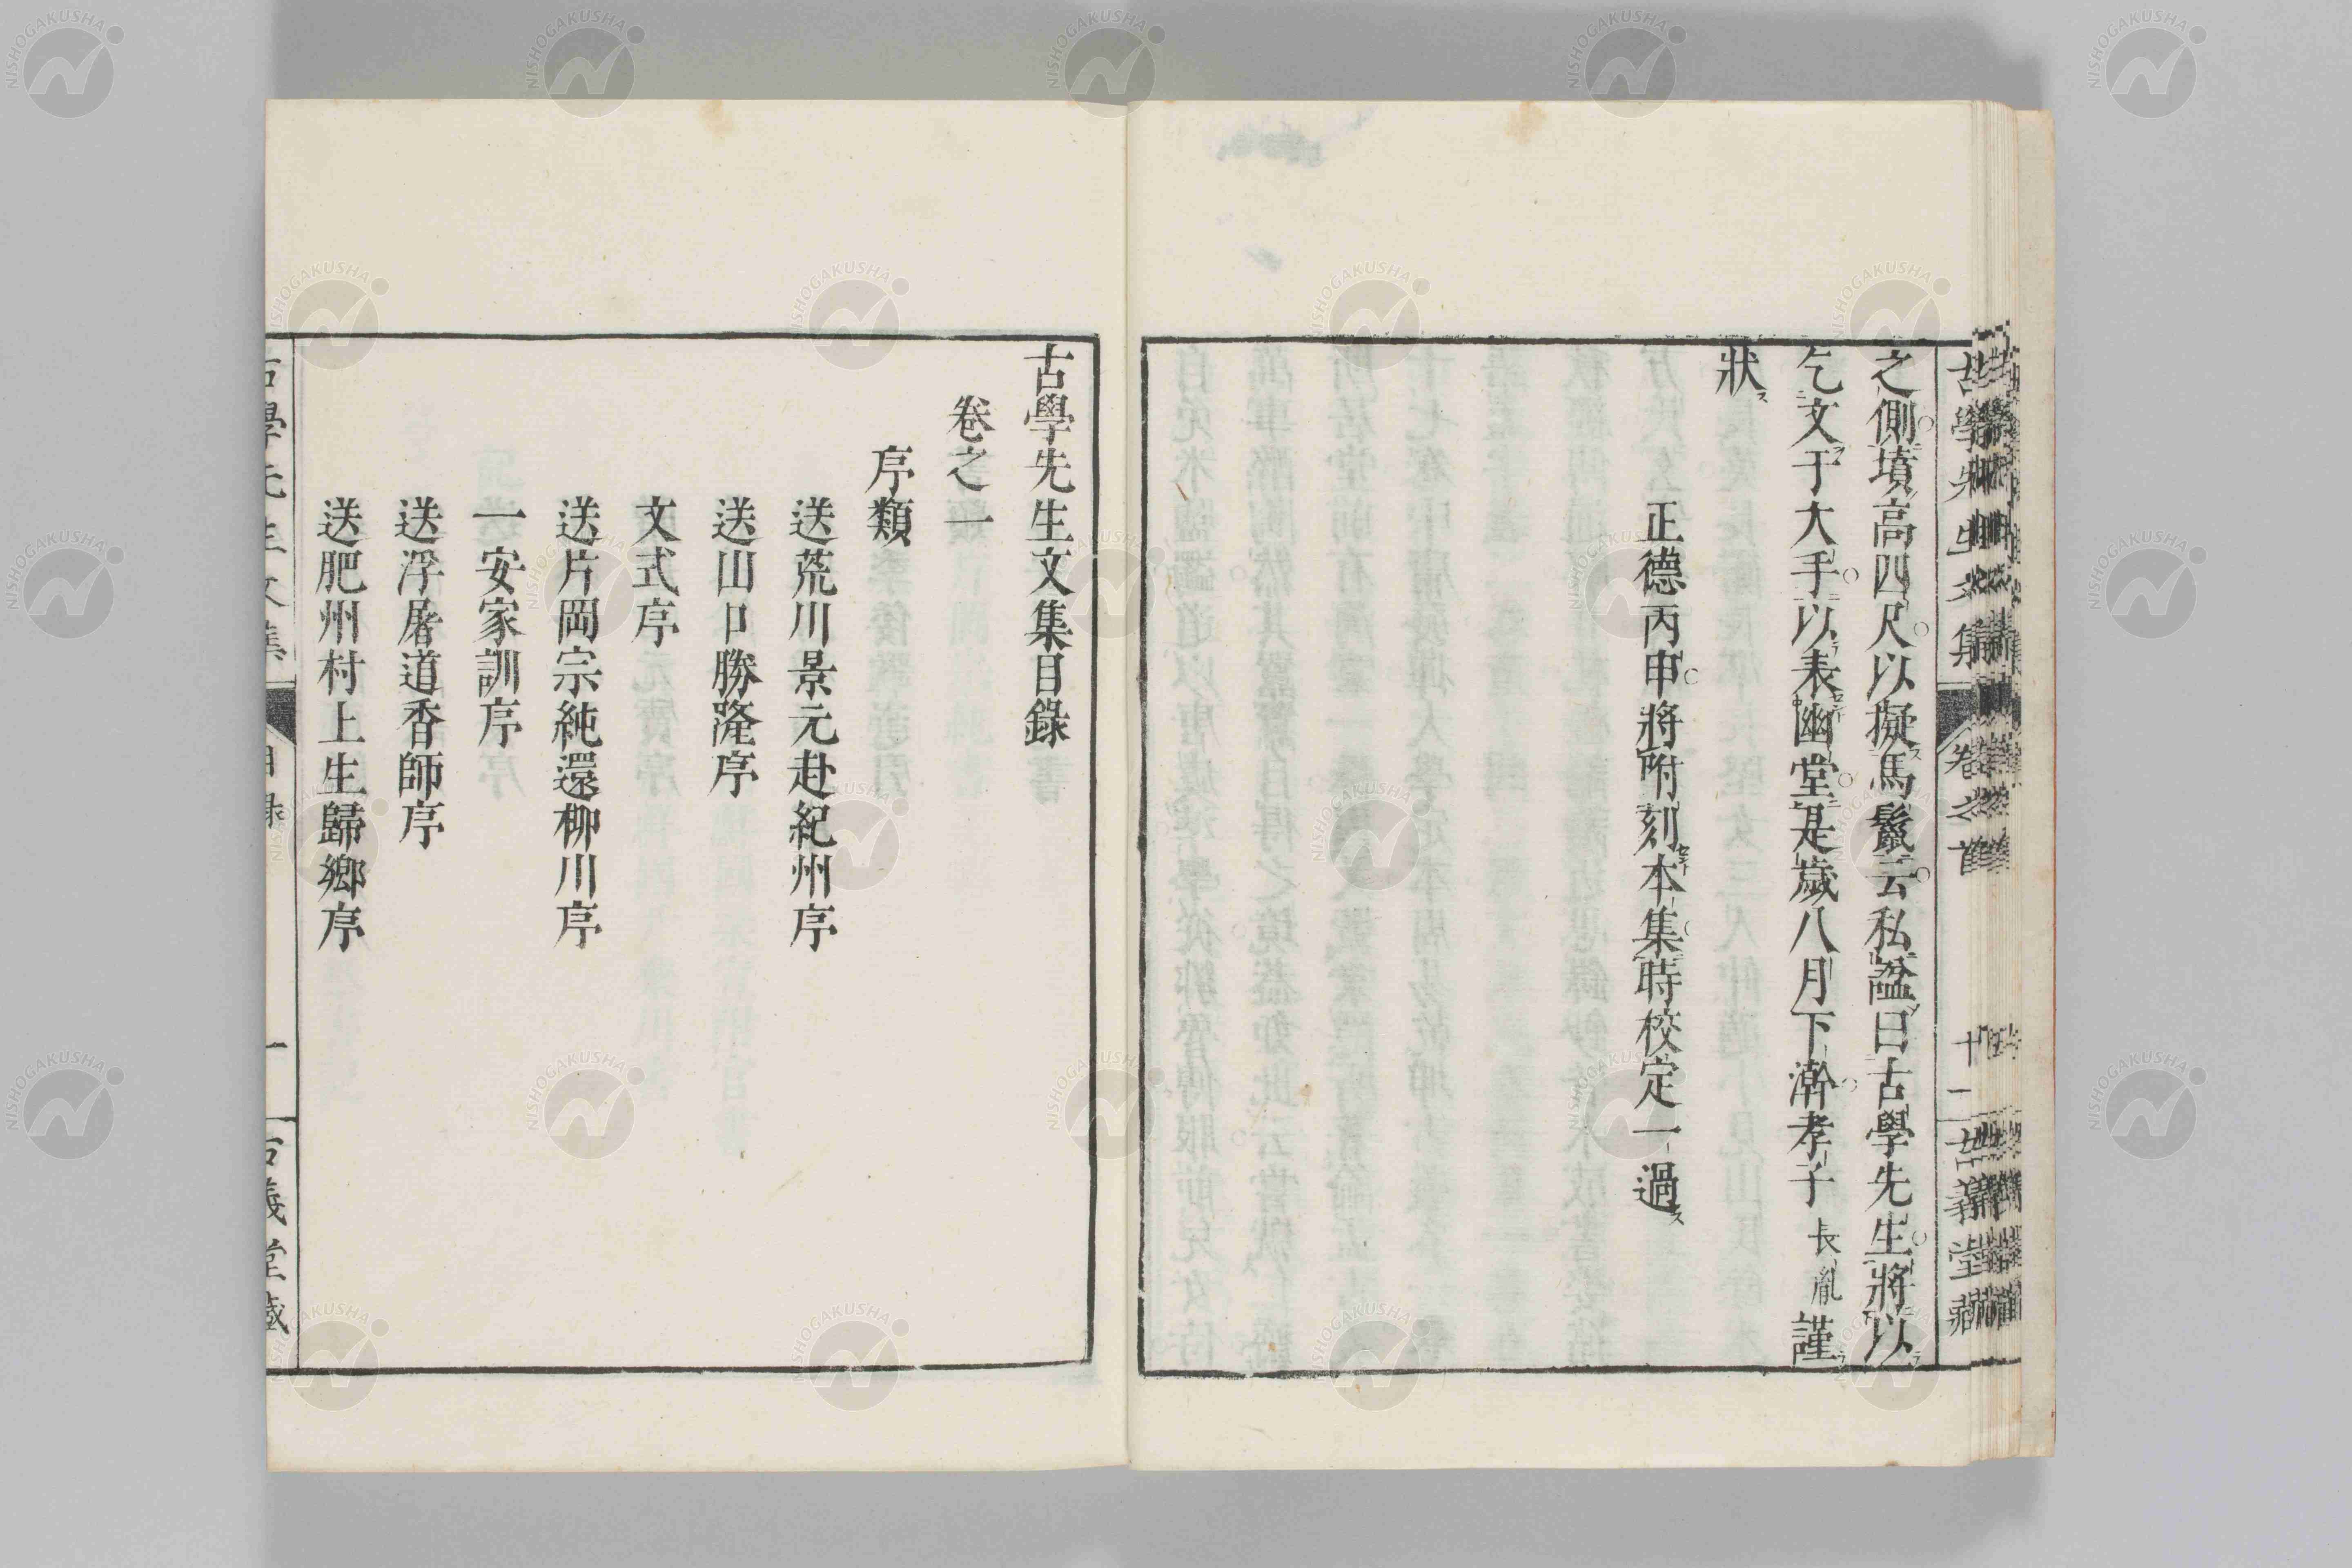 古學先生文集 卷之首 十二 古義堂藏
之側墳高四尺以擬馬鬣云私謚曰古學先生將以
乞文于大手以表幽堂是歲八月下澣孝子長胤謹
狀
正德丙申將附刻本集時校定一過
古學先生文集目錄
卷之一
序類
送荒川景元赴紀州序
送山口勝隆序
文式序
送片岡宗純還柳川序
一安家訓序
送浮屠道香師序
送肥州村上生歸鄉序
古學先生文集 目錄 一 古義堂藏
NISHOGAKUSHA